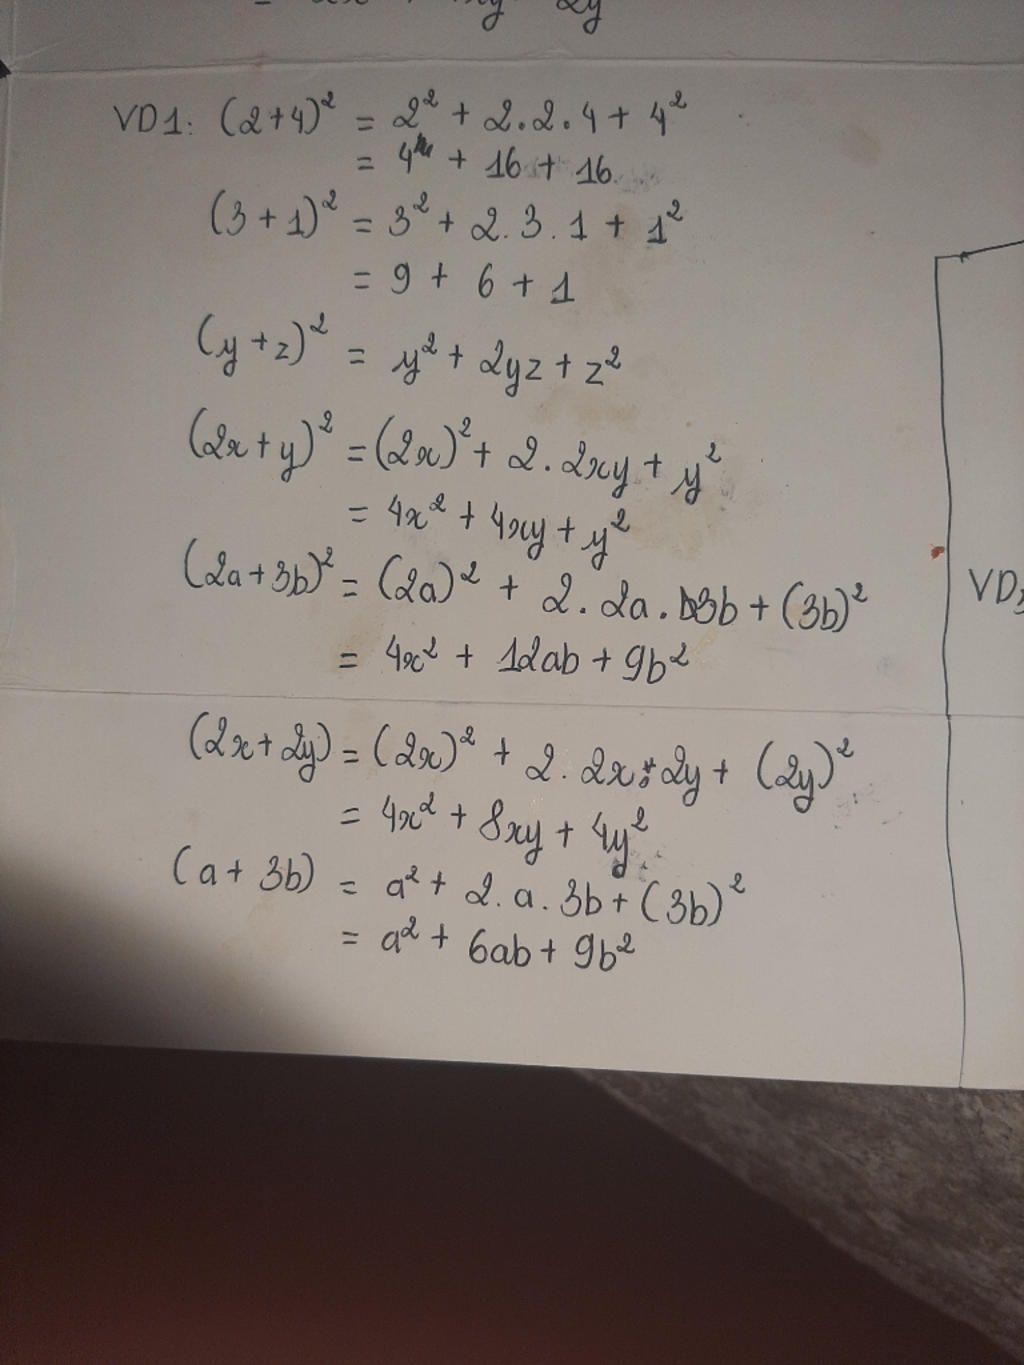 2y
VD1: (2+4)² = 2² + 2.2.4 + 4²
= 4 + 16 + 16
(3+1)² = 3² + 2.3.1 + 1²
= 9 + 6 + 1
(y+z)² = y² + 2yz + z²
(2x+y)² = (2x)² + 2.2xy + y²
= 4x² + 4xy + y²
(2a+3b)² = (2a)² + 2.2a.3b + (3b)²
= 4x² + 12ab + 9b²
VD
(2x+2y) = (2x)² + 2.2x.2y + (2y)²
= 4x² + 8xy + 4y²
(a+3b) = a² + 2.a.3b + (3b)²
= a² + 6ab + 9b²